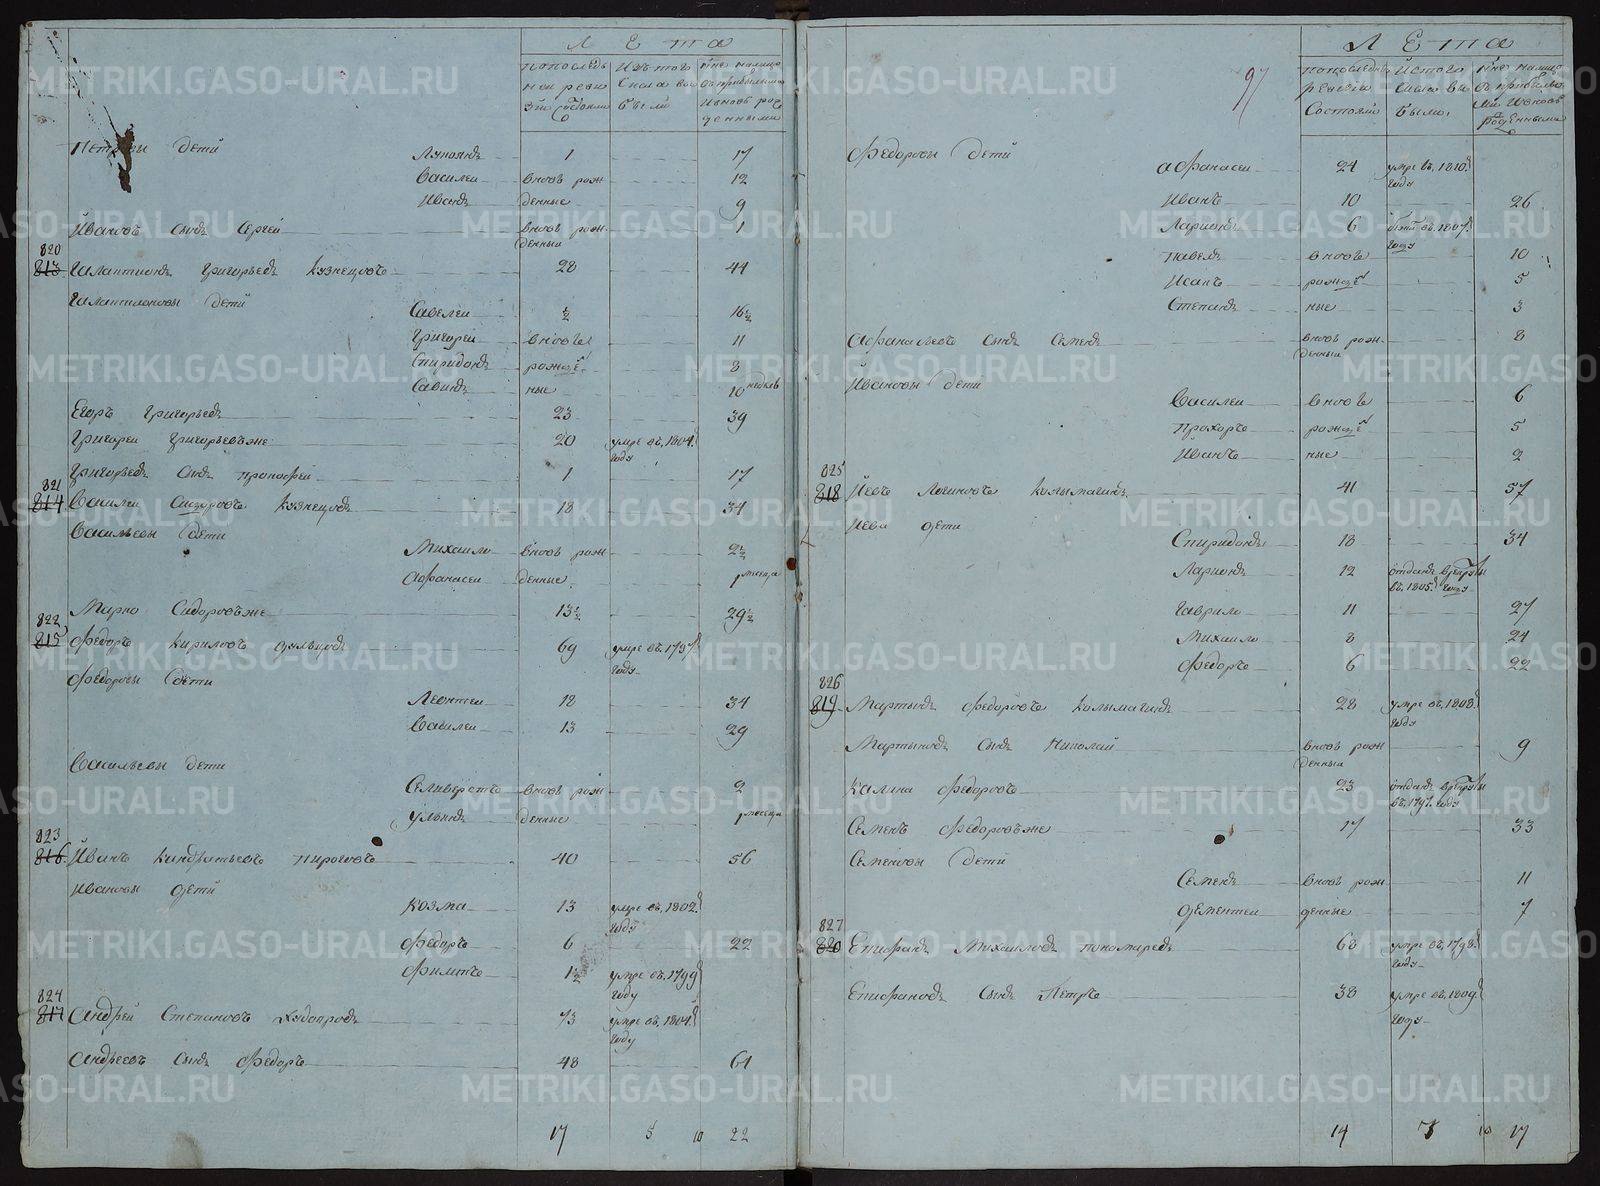 Л Е т а
попослѣд
ней реви
зїи состояли
Изъ того
числа вы
были
нне налицо
съ прибылыми
и вновь рож
денными
Петровы дети
Лупонъ 1 17
Василеи вновь рож 12
Иванъ денные 9
Ивановъ сынъ Сергей вновь рож 1
денный
820
813 Галактионъ Григорьевъ Кузнецовъ 28 44
Галактионовы дети
Савелеи ½ 16½
Григореи вновь 11
Спиридонъ рожде 8
Савинъ ные 10 недель
Егоръ Григорьевъ 23 39
Григореи Григорьевъ же 20 умре въ 1804
году
Григорьевъ сынъ Прокофеи 1 17
821
814 Василеи Сидоровъ Кузнецовъ 18 34
Васильевы дети
Михаило вновь рож 2½
Афанасеи денные 1 месеца
Марко Сидоровъ же 13½ 29½
822
815 Федоръ Кириловъ 69 умре въ 1797
году
Федоровы дети
Леонтеи 18 34
Василеи 13 29
Васильевы дети
Селиверстъ вновь рож 2
Ульянъ денные 1 месеца
823
816 Иванъ Кондратьевъ Пироговъ 40 56
Ивановы дети
Козма 13 умре въ 1802
году
Федоръ 6 22
Филипъ 1½ умре въ 1799
году
824
817 Андрей Степановъ Худопровъ 73 умре въ 1804
году
Андреевъ сынъ Федоръ 48 64
17 5 10 22
97
Л Е т а
попоследней
ревизїи
Состояли
Ис того
числа вы
были
нне налицо
съ прибылы
ми и вновь
рожденными
Федоровы дети
Афанасеи 24 умре въ 1810
году
Иванъ 10 26
Ларионъ 6 въ 1807
году
Павелъ вновь 10
Исакъ рожде 5
Степанъ ные 3
Афанасьевъ сынъ Семенъ вновь рож 8
денный
Ивановы дети
Василеи вновь 6
Прохоръ рожде 5
Иванъ ные 2
825
818 Иевъ Логиновъ Колымагинъ 41 57
Иева дети
Спиридонъ 18 34
Ларионъ 12 отданъ в рекруты
въ 1805 году
Гаврило 11 27
Михаило 8 24
Федоръ 6 22
826
819 Мартынъ Федоровъ Колымагинъ 28 умре въ 1808
году
Мартыновъ сынъ Николай вновь рож 9
денный
Калина Федоровъ 23 отданъ в рекруты
въ 1797 году
Семенъ Федоровъ же 17 33
Семеновы дети
Семенъ вновь рож 11
Дементеи денные 7
827
820 Епифанъ Михаиловъ Пономаревъ 68 умре въ 1798
году
Епифановъ сынъ Петръ 38 умре въ 1809
году
14 7 10 17
METRIKI.GASO-URAL.RU